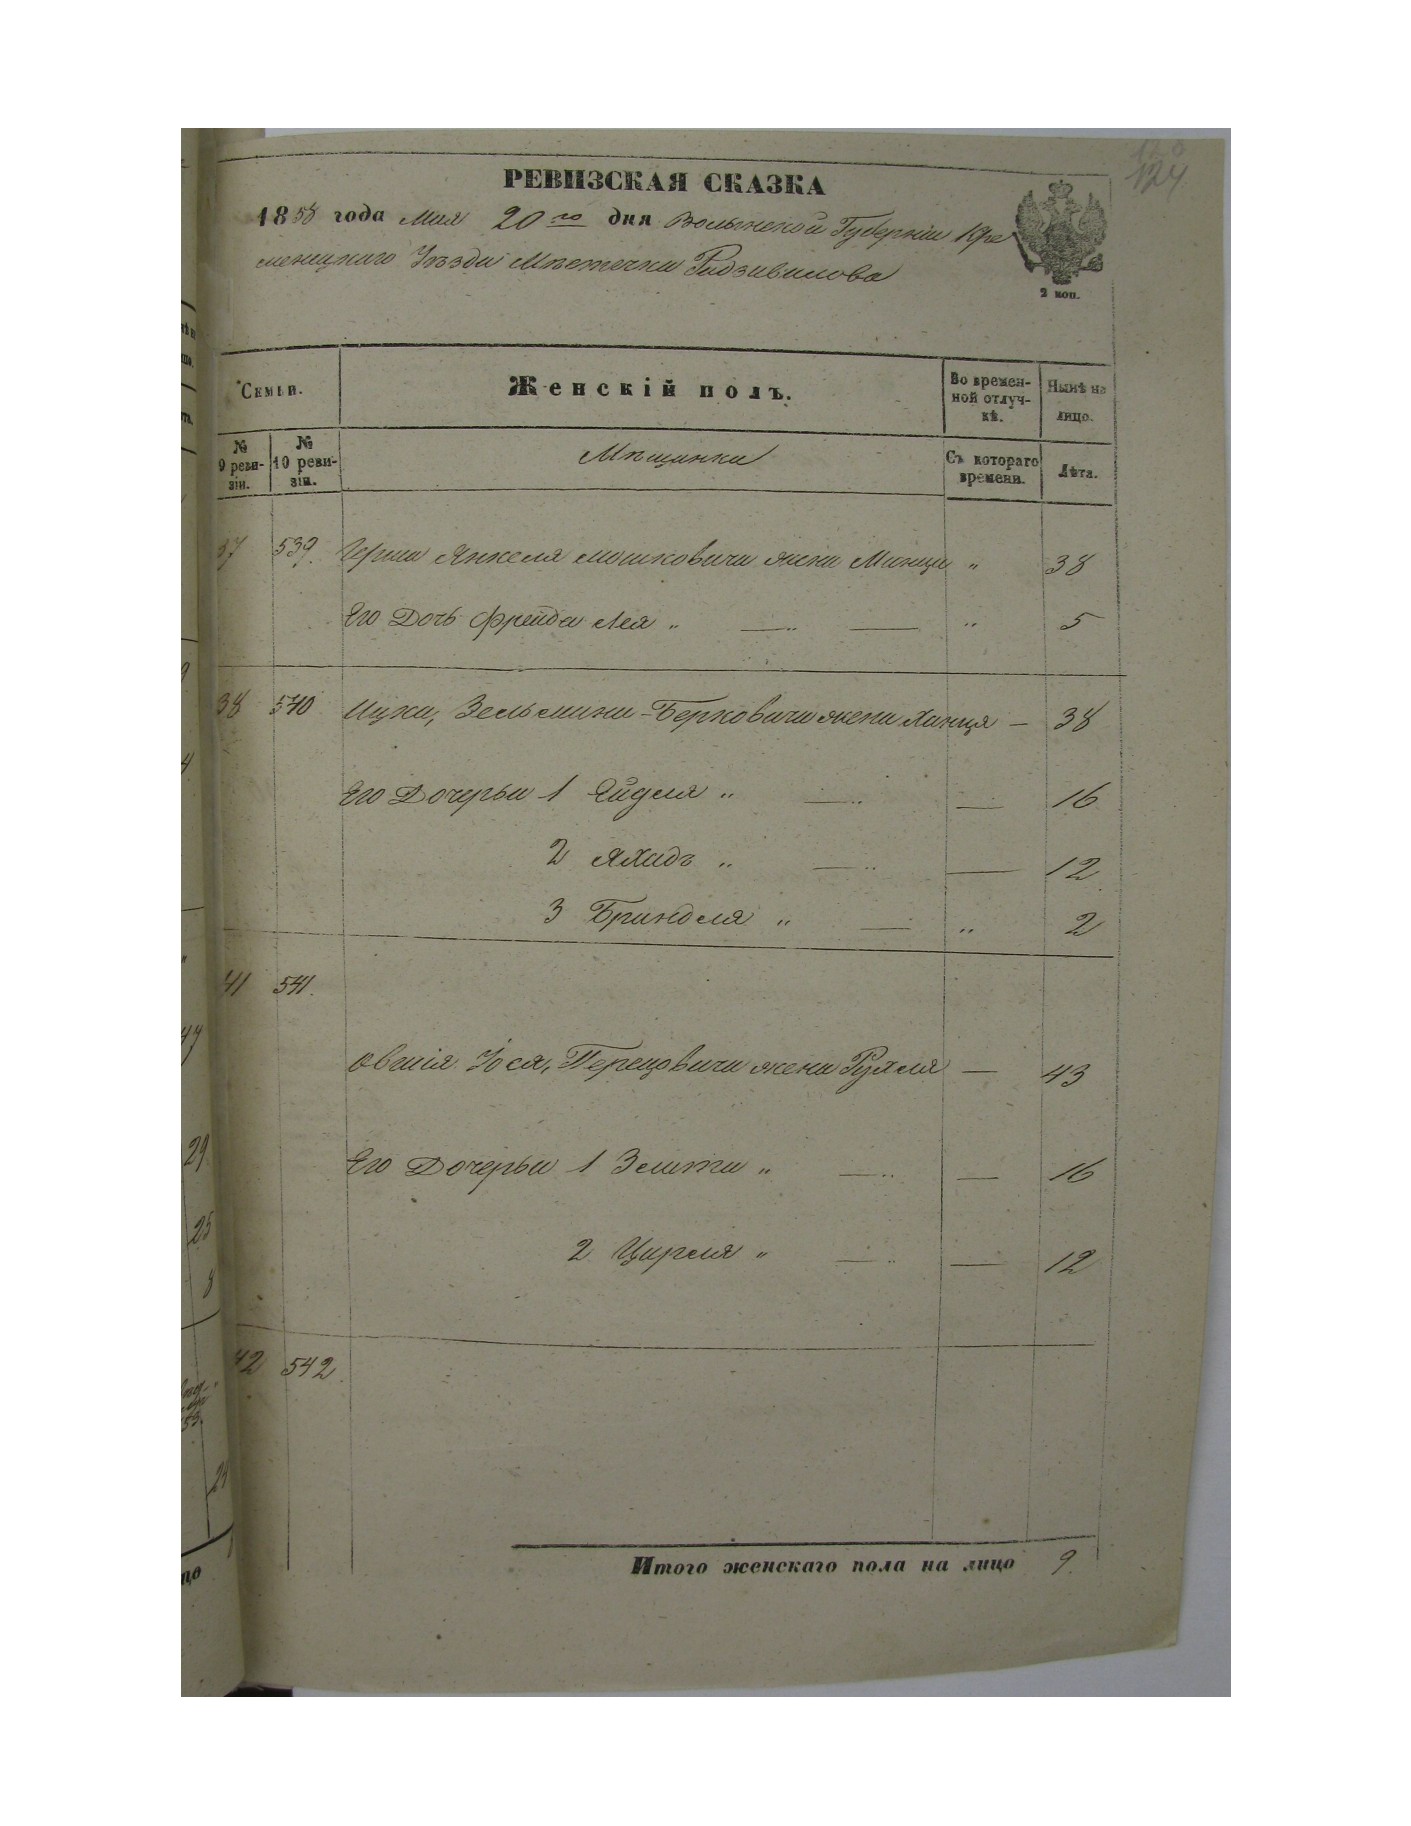 124
РЕВИЗСКАЯ СКАЗКА
1858 года Мая 20го дня Волынской Губерніи Кре
менецкаго Уѣзда Мѣстечка Радзивилова
2 коп.
Семьи.
Женскій полъ.
Во времен-
ной отлуч-
кѣ.
Нынѣ на
лицо.
№
9 реви-
зіи.
№
10 реви-
зіи.
Мѣщанки
Съ котораго
времени.
Лѣта.
37 539. Герша Янкеля Мошковича жена Минця „ 38
Его Дочь Фрейда Лея „ — „ — „ 5
38 540 Ицка, Зельмана Берковича жена Хинця — 38
Его Дочерьи 1 Ейдля „ — „ — 16
2 Яхадъ „ — „ — 12
3 Бриндля „ — „ 2
41 541.
Овшія Іося, Перецовича жена Рузя — 43
Его Дочерьи 1 Злата „ — „ — 16
2 Цирля „ — „ — 12
42 542.
Итого женскаго пола на лицо 9.